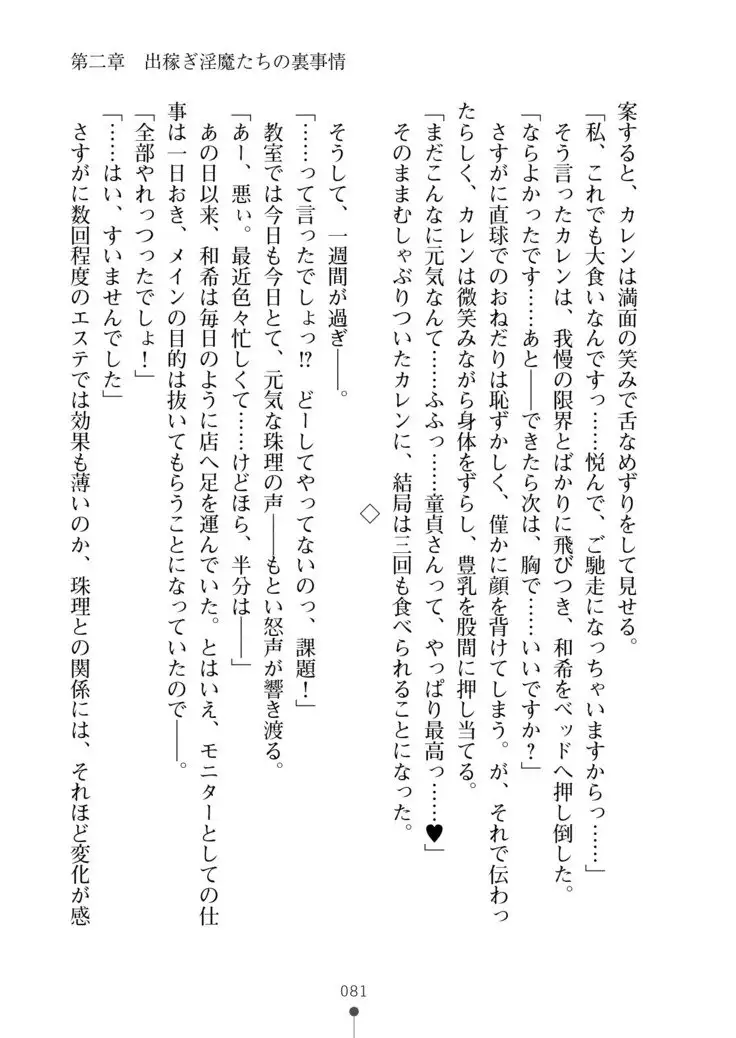 第二章　出稼ぎ淫魔たちの裏事情
案すると、カレンは満面の笑みで舌なめずりをして見せる。
「私、これでも大食いなんですっ……悦んで、ご馳走になっちゃいますからっ……」
そう言ったカレンは、我慢の限界とばかりに飛びつき、和希をベッドへ押し倒した。
「ならよかったです……あと――できたら次は、胸で……いいですか？」
さすがに直球でのおねだりは恥ずかしく、僅かに顔を背けてしまう。が、それで伝わっ
たらしく、カレンは微笑みながら身体をずらし、豊乳を股間に押し当てる。
「まだこんなに元気なんて……ふふっ……童貞さんって、やっぱり最高っ……♥」
そのままむしゃぶりついたカレンに、結局は三回も食べられることになった。
◇
そうして、一週間が過ぎ――。
「……って言ったでしょっ!?　どーしてやってないのっ、課題！」
教室では今日も今日とて、元気な珠理の声――もとい怒声が響き渡る。
「あー、悪ぃ。最近色々忙しくて……けどほら、半分は――」
あの日以来、和希は毎日のように店へ足を運んでいた。とはいえ、モニターとしての仕
事は一日おき、メインの目的は抜いてもらうことになっていたので――。
「全部やれっつったでしょ！」
「……はい、すいませんでした」
さすがに数回程度のエステでは効果も薄いのか、珠理との関係には、それほど変化が感
081